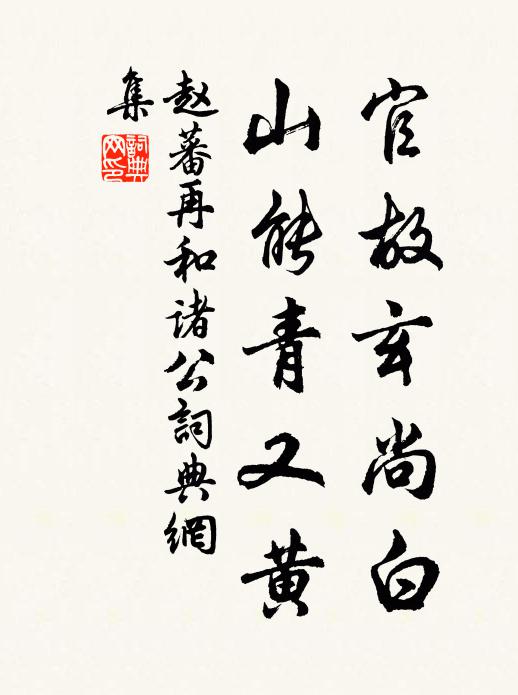 官故玄尚白
山能青又黄
赵蕃再和诸公詞典網
集
詞典
网印